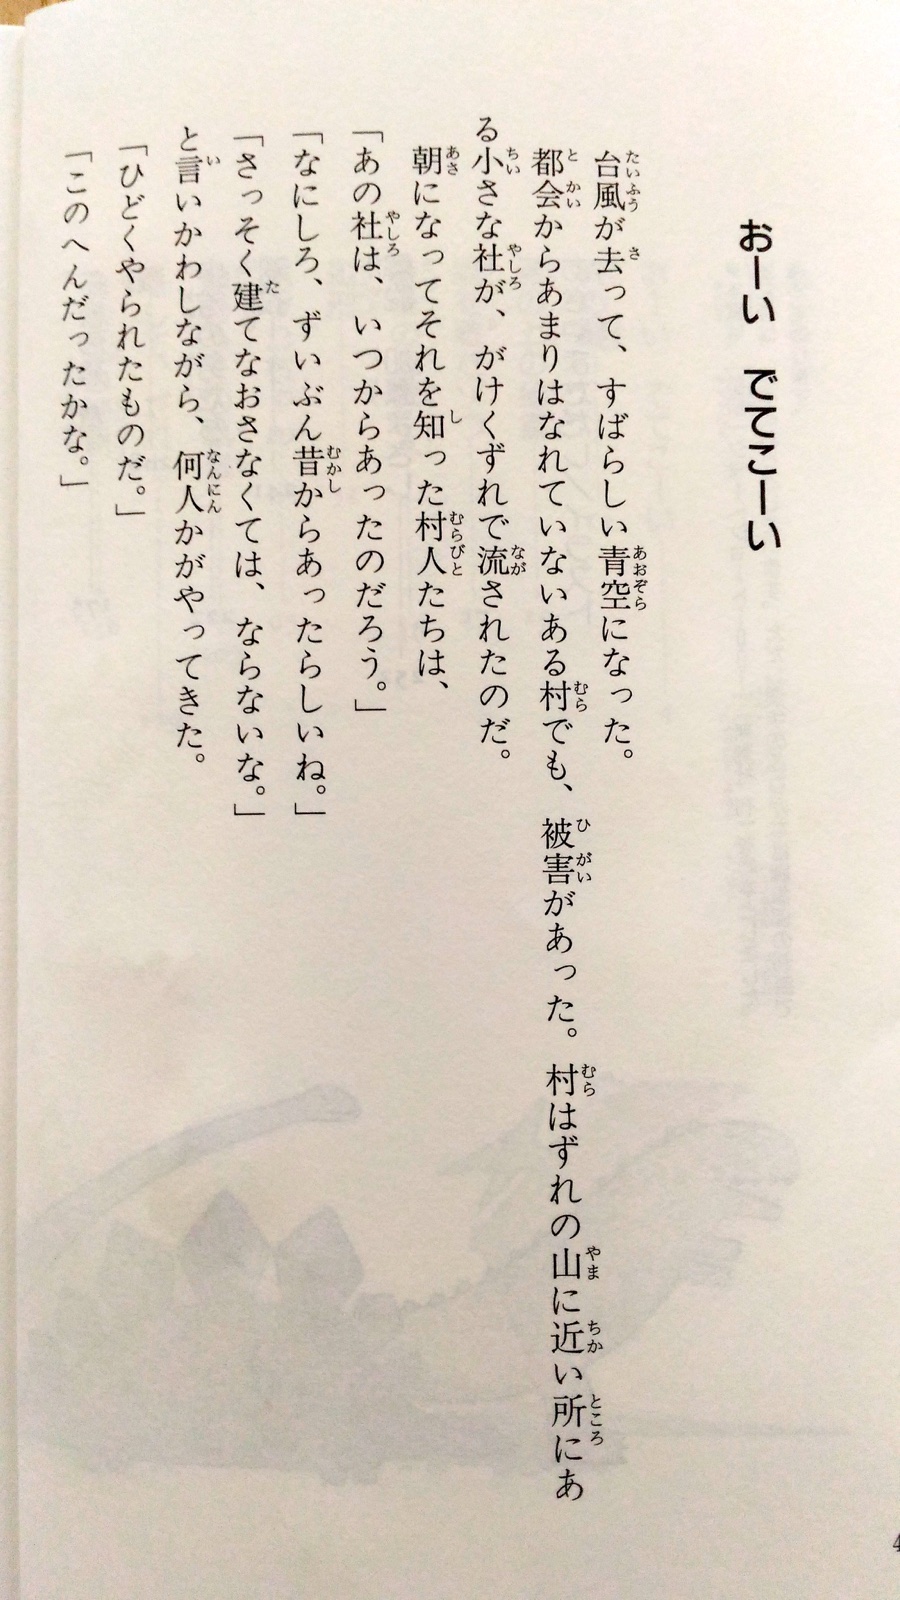 おーい でてこーい
台風が去って、すばらしい青空になった。
都会からあまりはなれていないある村でも、被害があった。村はずれの山に近い所にあ
る小さな社が、がけくずれで流されたのだ。
朝になってそれを知った村人たちは、
「あの社は、いつからあったのだろう。」
「なにしろ、ずいぶん昔からあったらしいね。」
「さっそく建てなおさなくては、ならないな。」
と言いかわしながら、何人かがやってきた。
「ひどくやられたものだ。」
「このへんだったかな。」